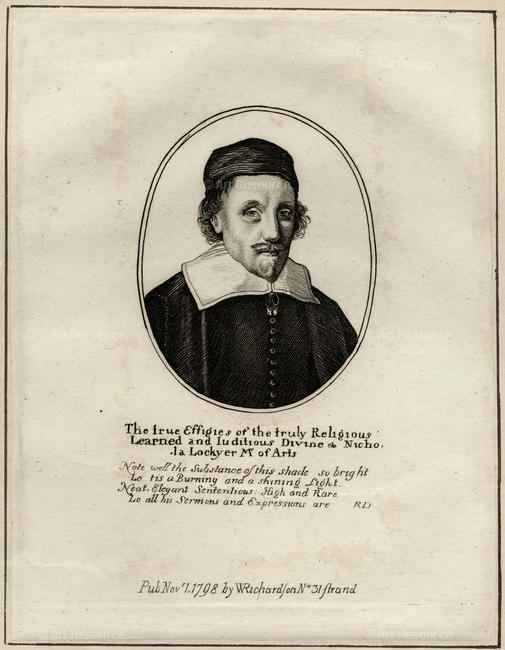 The true Effigies of the truly Religious
Learned and Iuditious Divine Nicho
la Lockyer Mr of Arts
Note well the Substance of this shade so bright
Lo tis a Burning and a shining Light.
Neat, Elegant Sententious: High and Rare
Lo all his Sermons and Expressions are RD
Pub Nov 1. 1798 by W Richardson No 31 strand
© Art Resource